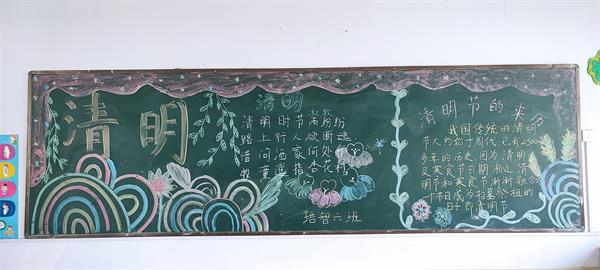 清明
清明
杜牧
清明时节雨纷纷
路上行人欲断魂
借问酒家何处有
牧童遥指杏花村
培智六班
清明节的来历
我国传统的清明
节大约始于周代,已有2500
多年的历史,因为清明
又寒食节日期相近,清
明节和寒食节渐渐融合
节日成为扫墓祭祖的
日子即清明节